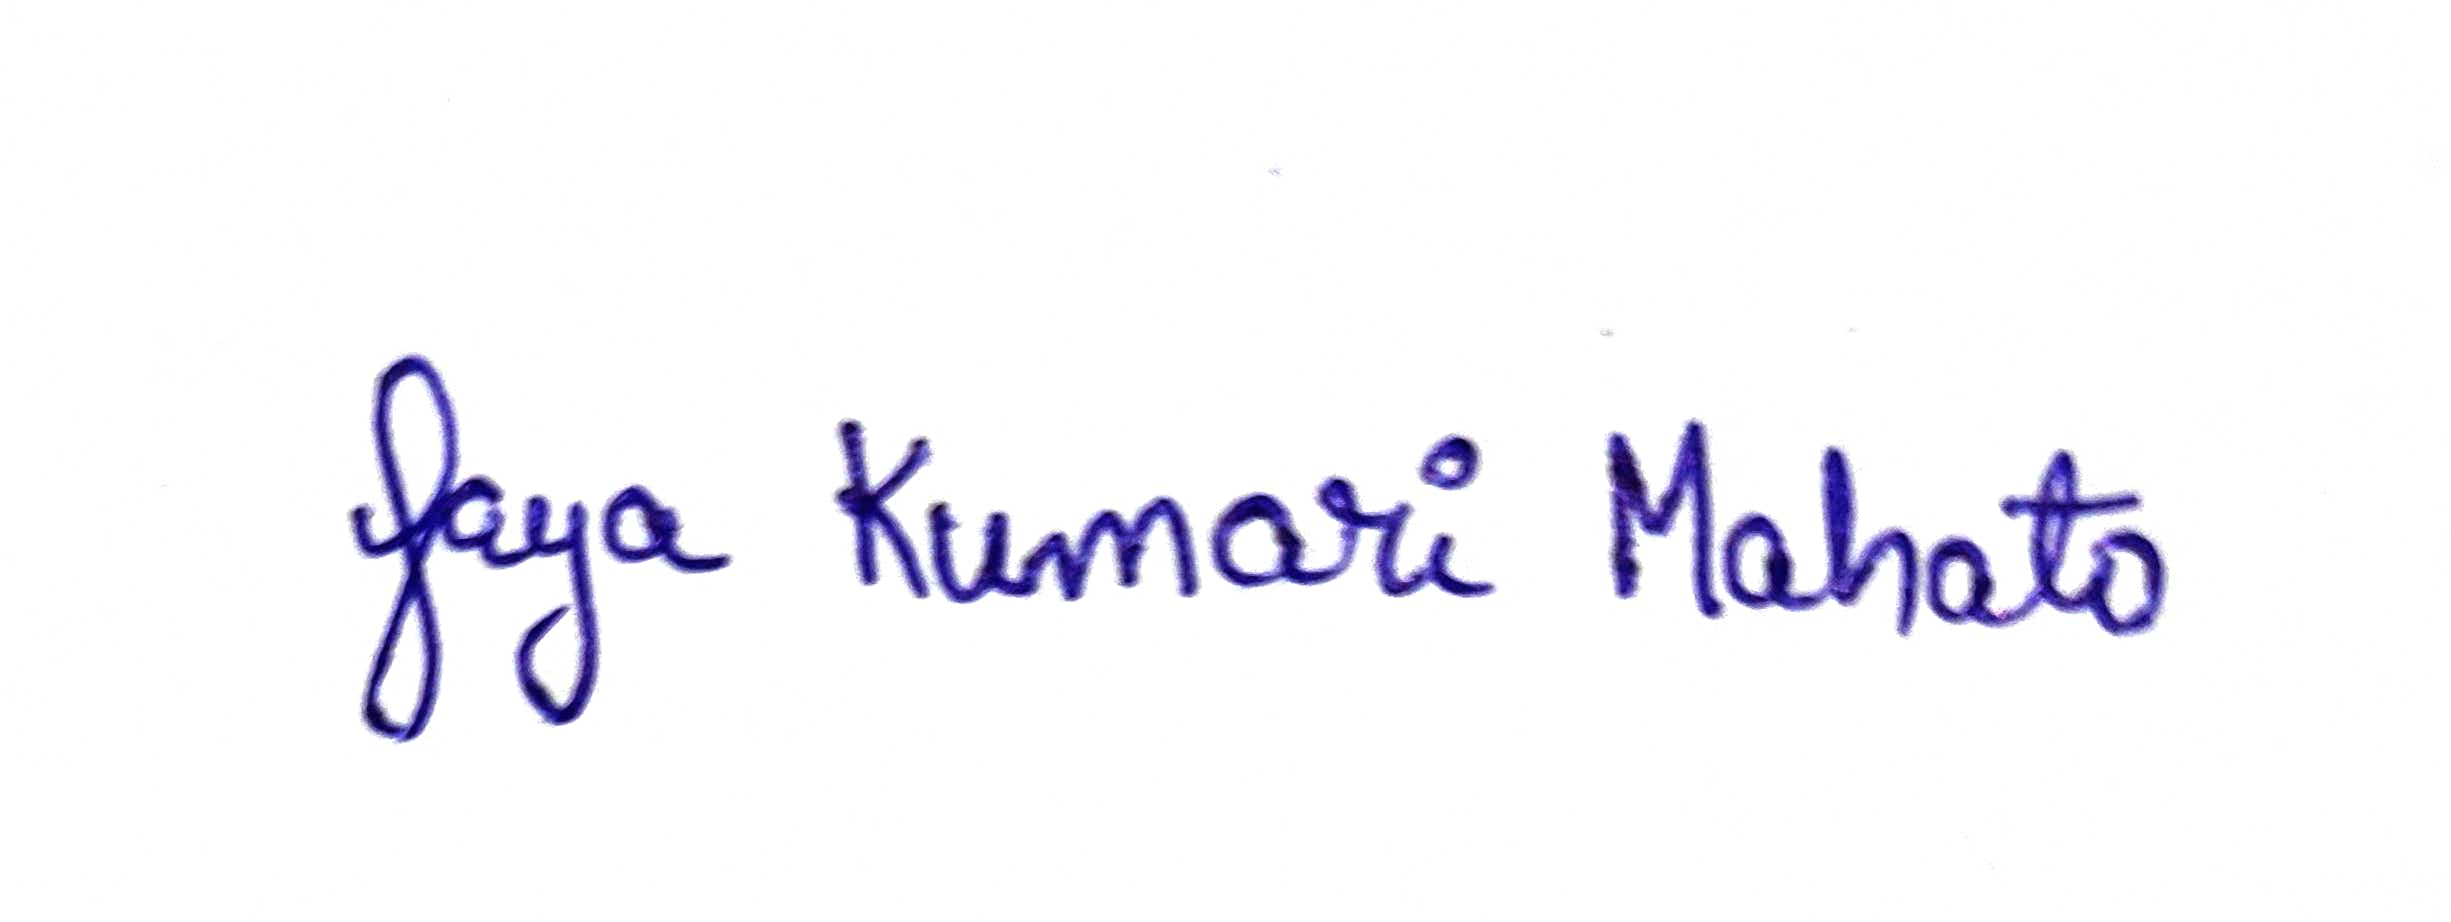 Jaya Kumari Mahato